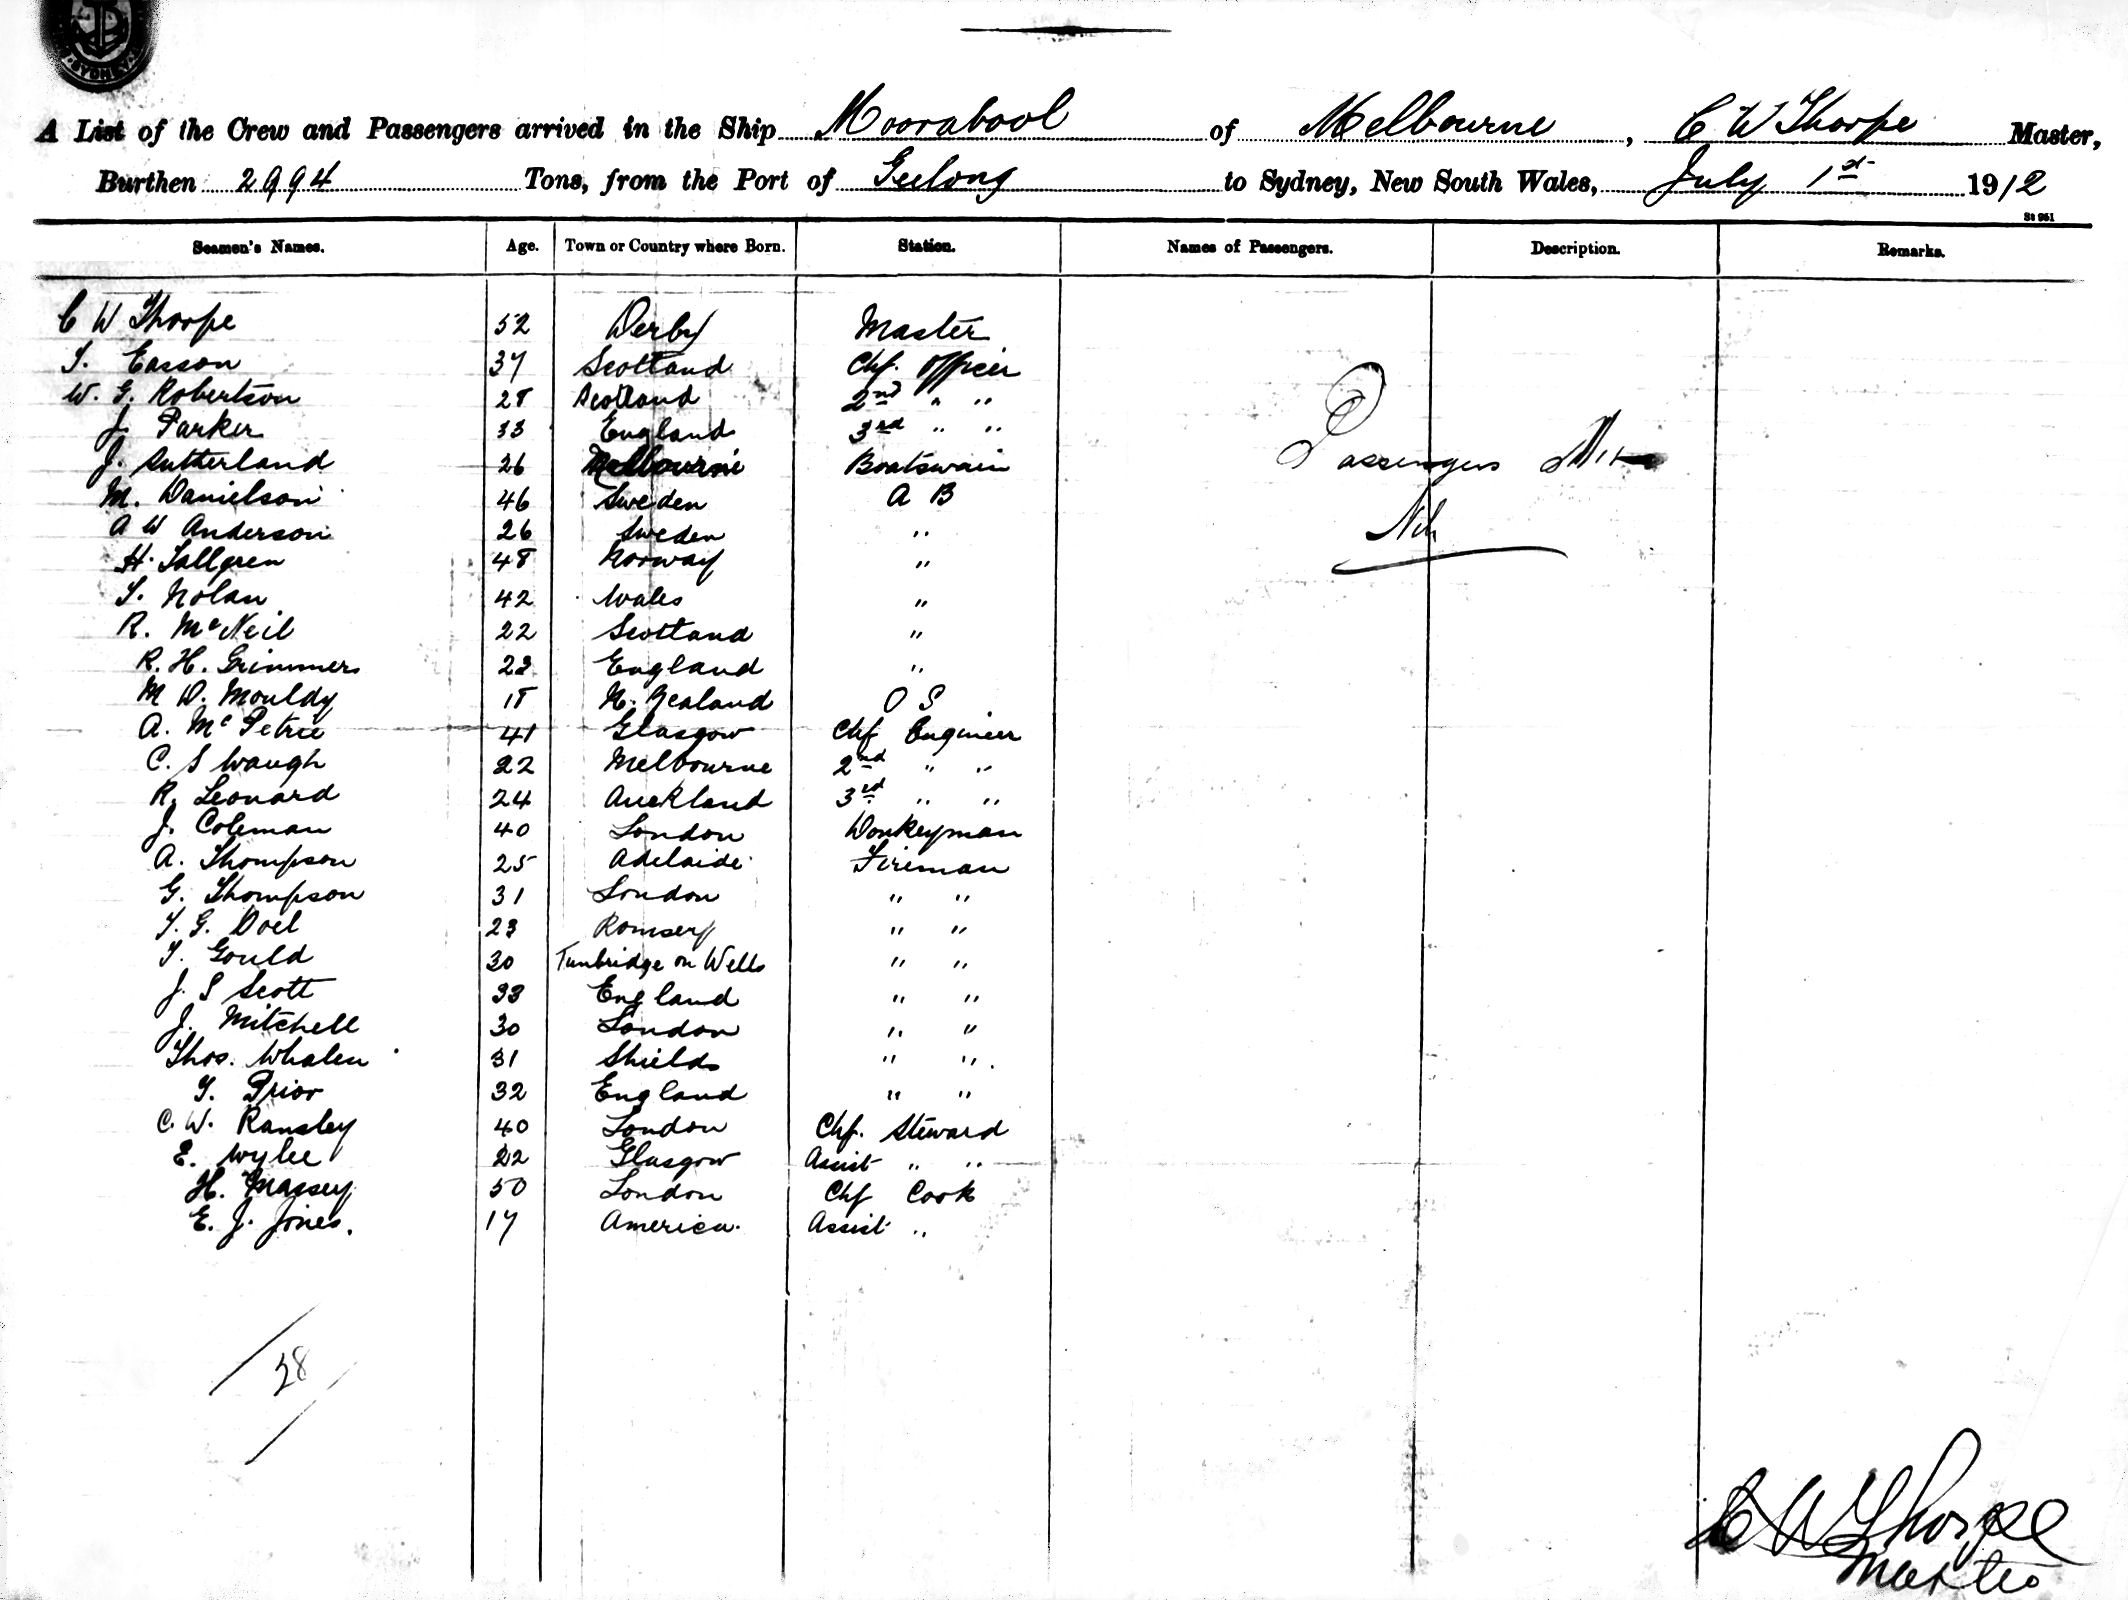 SYDNEY
A List of the Crew and Passengers arrived in the Ship Moorabool of Melbourne, C W Thorpe Master,
Burthen 2994 Tons, from the Port of Geelong to Sydney, New South Wales, July 1st 1912
St 951
Seamen's Names. Age. Town or Country where Born. Station. Names of Passengers. Description. Remarks.
C W Thorpe 52 Derby Master
T. Easson 37 Scotland Chf. Officer
W. G. Robertson 28 Scotland 2nd " "
J. Parker 33 England 3rd " "
J. Sutherland 26 Melbourne Boatswain Passengers
M. Danielson 46 Sweden A B
A W Anderson 26 Sweden " Nil
H. Tallgren 48 Norway "
T. Nolan 42 Wales "
R. McNeil 22 Scotland "
R. H. Grimmers 23 England "
M D. Mouldy 18 N. Zealand O S
A. McPetrie 41 Glasgow Chf Engineer
C. S Waugh 22 Melbourne 2nd " "
R. Leonard 24 Auckland 3rd " "
J. Coleman 40 London Donkeyman
A. Thompson 25 Adelaide Fireman
G. Thompson 31 London " "
T. G. Doel 23 Romsey " "
T. Gould 30 Tunbridge on Wells " "
J. S Scott 33 England " "
J. Mitchell 30 London " "
Thos. Whalen 31 Shields " "
T. Prior 32 England " "
C. W. Ransley 40 London Chf. Steward
E. Wylee 22 Glasgow Assist " "
H. Massey 50 London Chf Cook
E. J. Jones. 17 America. Assist "
28
C W Thorpe
Master